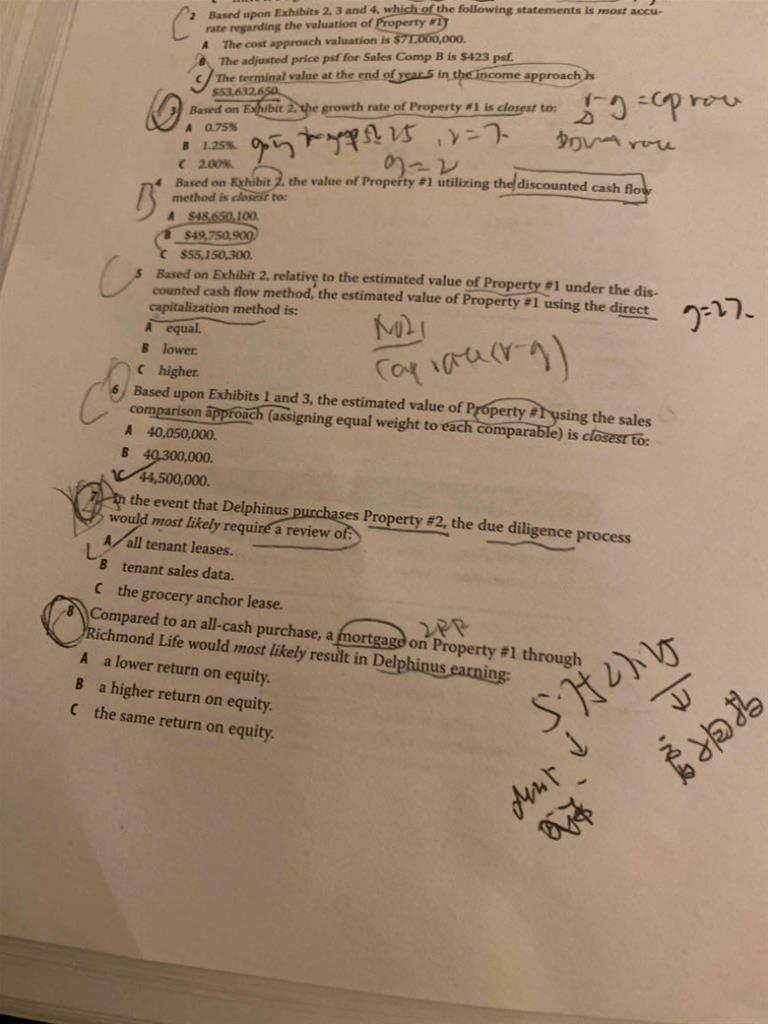 2 Based upon Exhibits 2, 3 and 4, which of the following statements is most accu-
rate regarding the valuation of Property #1?
A The cost approach valuation is $71,000,000.
B The adjusted price psf for Sales Comp B is $423 psf.
C The terminal value at the end of year 5 in the income approach is
$53,632,650.
3 Based on Exhibit 2, the growth rate of Property #1 is closest to:
A 0.75%
B 1.25%.
C 2.00%.
r-g = cap rate
g=2
4 Based on Exhibit 2, the value of Property #1 utilizing the discounted cash flow
method is closest to:
A $48,650,100.
B $49,750,900.
C $55,150,300.
B
5 Based on Exhibit 2, relative to the estimated value of Property #1 under the dis-
counted cash flow method, the estimated value of Property #1 using the direct
capitalization method is:
g=2%
A equal.
B lower.
C higher.
C
NOI
cap rate (r-g)
6 Based upon Exhibits 1 and 3, the estimated value of Property #1 using the sales
comparison approach (assigning equal weight to each comparable) is closest to:
A 40,050,000.
B 40,300,000.
C 44,500,000.
C
7 In the event that Delphinus purchases Property #2, the due diligence process
would most likely require a review of:
A all tenant leases.
B tenant sales data.
C the grocery anchor lease.
8 Compared to an all-cash purchase, a mortgage on Property #1 through
Richmond Life would most likely result in Delphinus earning:
A a lower return on equity.
B a higher return on equity.
C the same return on equity.